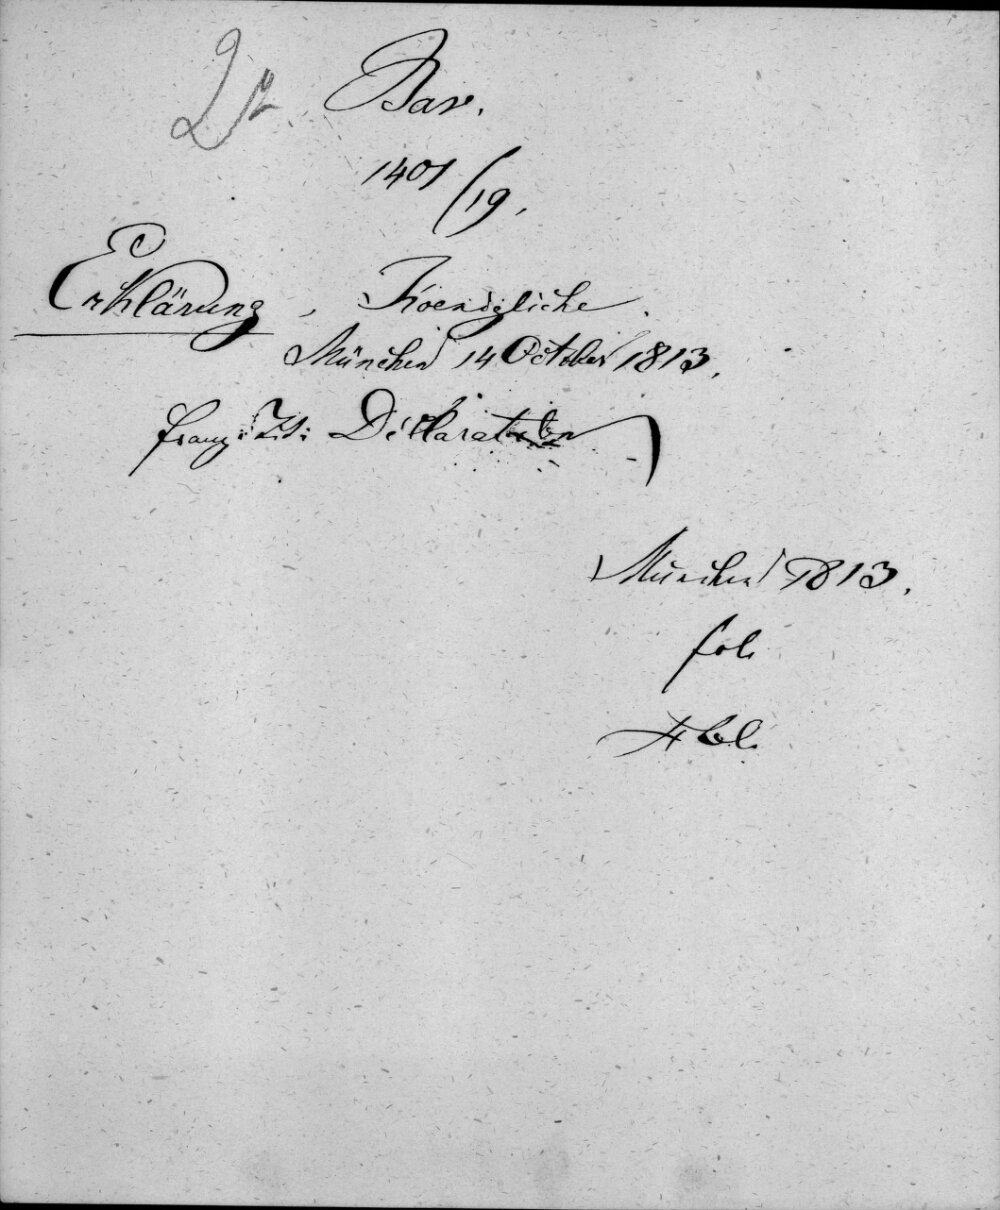 2º Bav.
1401/19.
Erklärung, Koenigliche.
München 14 October 1813.
franz: Tit: Déclaration)
München 1813.
fol.
4 bl.